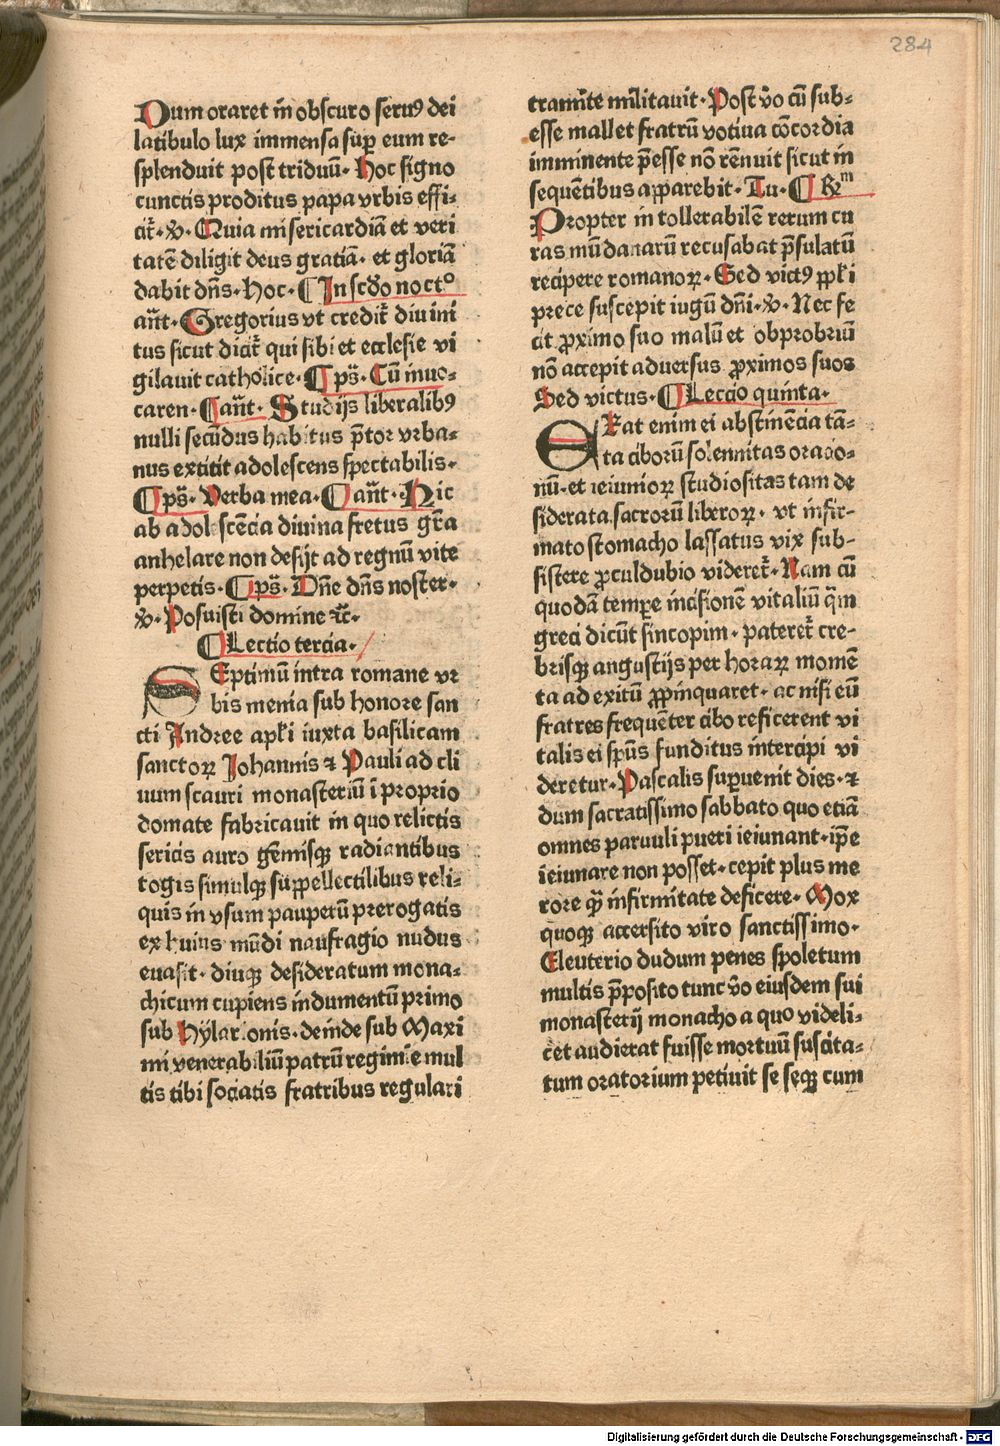 284
Dum oraret in obscuro seruꝰ dei
latibulo lux immensa suꝑ eum re-
splenduit post triduū. hoc signo
cunctis proditus papa vrbis effi-
cit̄. ꝟ. Quia misericordiā et veri
tatē diligit deus gratiā. et gloriā
dabit dn̄s. hoc. ¶ In scd̄o noct⁰
an̄t. Gregorius vt credit̄ diuini
tus sicut dicit̄ qui sibi et ecclesie vi
gilauit catholice. ¶ ps̄. Cū inuo-
caren. ¶ an̄t. Studijs liberalibꝰ
nulli secūdus habitus p̄tor vrba-
nus extitit adolescens spectabilis.
¶ ps̄. Verba mea. ¶ an̄t. Hic
ab adolescēcia diuina fretus gr̄a
anhelare non desijt ad regnū vite
perpetis. ¶ ps̄. Dn̄e dn̄s noster.
ꝟ. Posuisti domine ⁊c̄.
¶ Lectio tercia.
SEptimū intra romane vr
bis menia sub honore san
cti Andree apl̄i iuxta basilicam
sanctoꝝ Johannis ⁊ Pauli ad cli
uum scauri monasteriū ī proprio
domate fabricauit in quo relictis
sericis auro gēmisqꝫ radiantibus
togis simulqꝫ suꝑpellectilibus reli-
quis in vsum pauperū prerogatis
ex huius mūdi naufragio nudus
euasit. diuqꝫ desideratum mona-
chicum cupiens indumentū primo
sub Hÿlarionis. deinde sub Maxi
mi venerabiliū patrū regimīe mul
tis tibi sociatis fratribus regulari
tramīte militauit. Post v̄o cū sub-
esse mallet fratrū votiua cōcordia
imminente p̄esse nō rēnuit sicut in
sequētibus aꝑparebit. Tu. ¶ ℞ᵐ
Propter in tollerabilē rerum cu
ras mūdanarū recusabat p̄sulatū
recipere romanoꝝ. Sed victꝰ ppl̄i
prece suscepit iugū dn̄i. ꝟ. Nec fe
cit ꝓximo suo malū et obprobriū
nō accepit aduersus ꝓximos suos
Sed victus. ¶ Lectio quinta.
ERat enim ei abstinēcia tā-
ta ciborū solennitas oracio-
nū. et ieiunioꝝ studiositas tam de
siderata sacrorū liberoꝝ. vt infir-
mato stomacho lassatus vix sub-
sistere ꝓculdubio videret̄. Nam cū
quodā tempe incisionē vitaliū q̄m
greci dicūt sincopim. pateret̄ cre-
brisqꝫ angustijs per horaꝝ momē
ta ad exitū ꝓpinquaret. ac nisi eū
fratres frequēter cibo reficerent vi
talis ei sp̄us funditus intercipi vi
deretur. Pascalis suꝑuenit dies. ⁊
dum sacratissimo sabbato quo etiā
omnes paruuli pueri ieiunant. ip̄e
ieiunare non posset. cepit plus me
rore q̄ꝫ infirmitate deficere. Mox
quoqꝫ accersito viro sanctissimo.
Eleuterio dudum penes spoletum
multis p̄posito tunc v̄o eiusdem sui
monasterij monacho a quo videli-
cet audierat fuisse mortuū suscita-
tum oratorium petiuit se seqꝫ cum
Digitalisierung gefördert durch die Deutsche Forschungsgemeinschaft - DFG